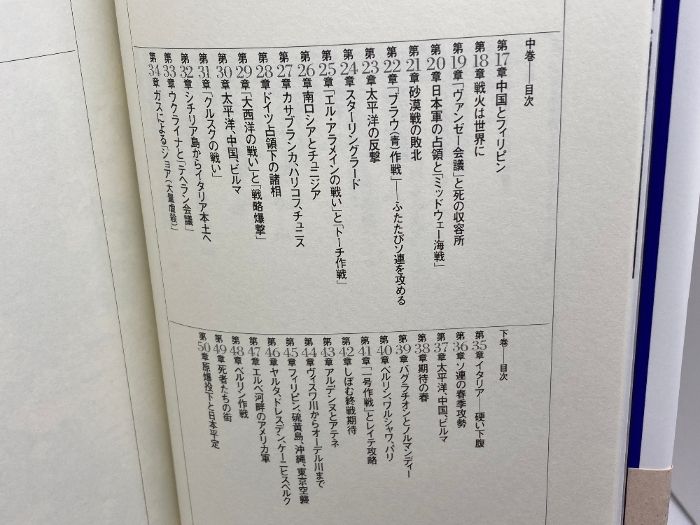 中巻――目次
第17章 中国とフィリピン
第18章 戦火は世界に
第19章 「ヴァンゼー会議」と死の収容所
第20章 日本軍の占領と「ミッドウェー海戦」
第21章 砂漠戦の敗北
第22章 「ブラウ(青)作戦」――ふたたびソ連を攻める
第23章 太平洋の反撃
第24章 スターリングラード
第25章 「エル・アラメインの戦い」と「トーチ作戦」
第26章 南ロシアとチュニジア
第27章 カサブランカ、ハリコフ、チュニス
第28章 ドイツ占領下の諸相
第29章 「大西洋の戦い」と「戦略爆撃」
第30章 太平洋、中国、ビルマ
第31章 「クルスクの戦い」
第32章 シチリア島からイタリア本土へ
第33章 ウクライナと「テヘラン会議」
第34章 ガスによる「ショア(大量虐殺)」
下巻――目次
第35章 イタリア――硬い下腹
第36章 ソ連の春季攻勢
第37章 太平洋、中国、ビルマ
第38章 期待の春
第39章 バグラチオンとノルマンディー
第40章 ベルリン、ワルシャワ、パリ
第41章 「一号作戦」とレイテ攻略
第42章 しぼむ終戦期待
第43章 アルデンヌとアテネ
第44章 ヴィスワ川からオーデル川まで
第45章 フィリピン、硫黄島、沖縄、東京空襲
第46章 ヤルタ、ドレスデン、ケーニヒスベルク
第47章 エルベ河畔のアメリカ軍
第48章 ベルリン作戦
第49章 死者たちの街
第50章 原爆投下と日本平定